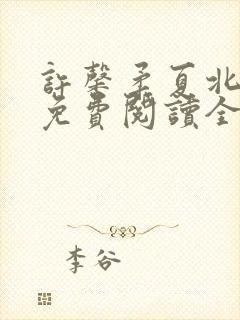 許馨矛夏北
免費閱讀全
李谷